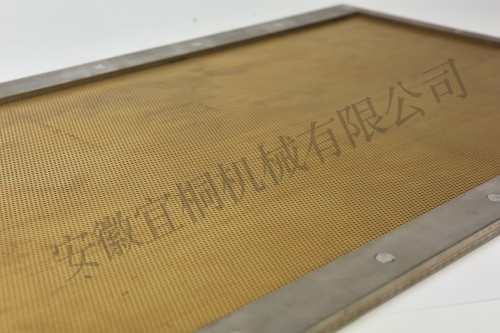 安徽宜桐机械有限公司